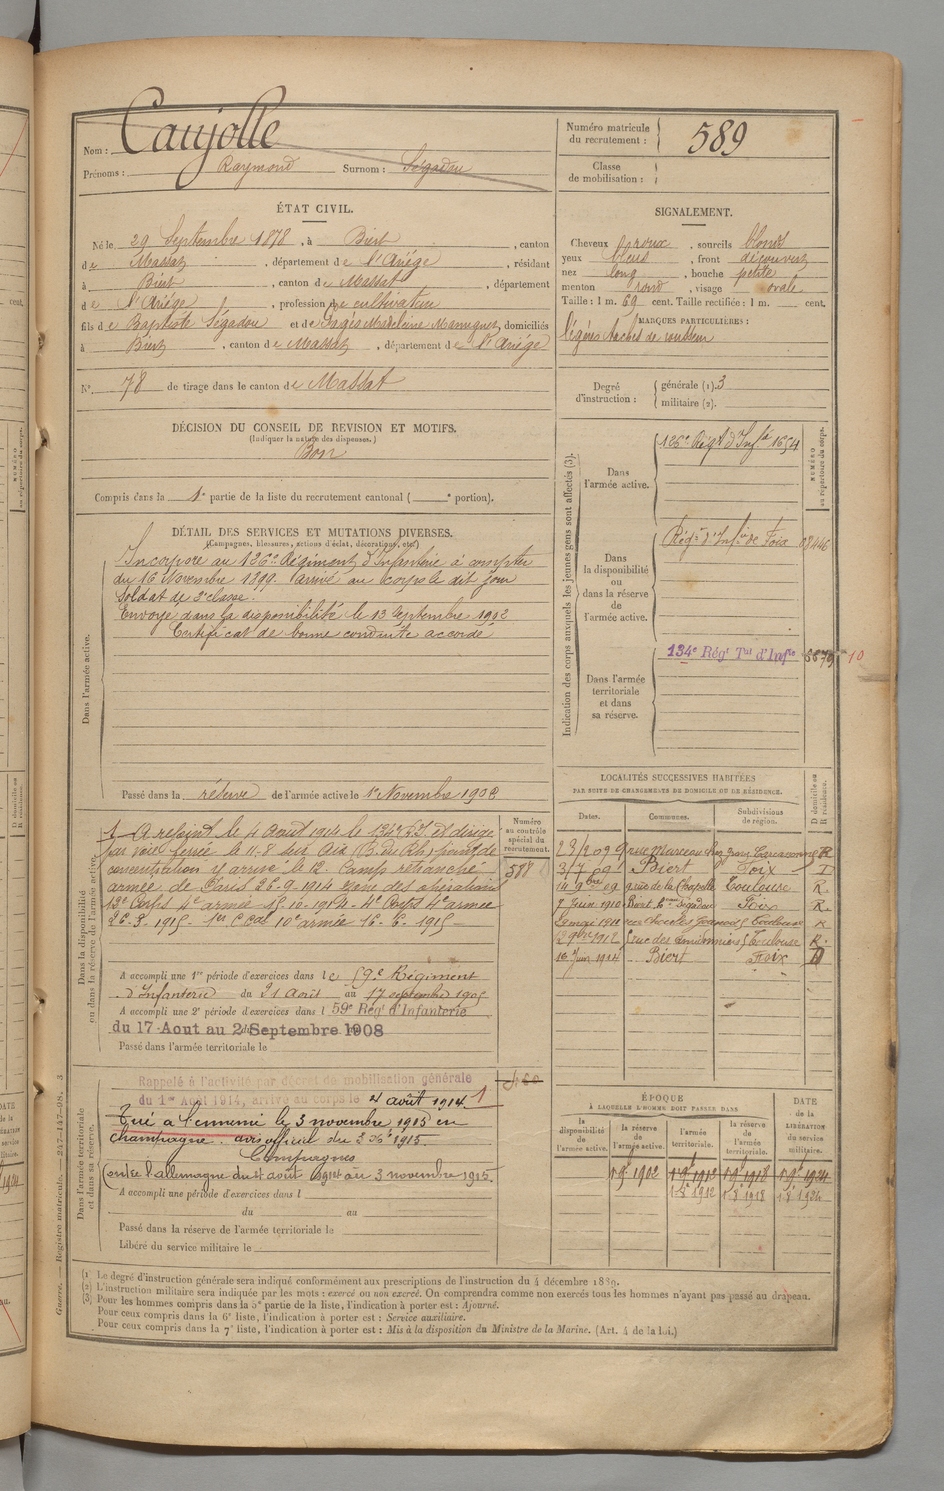 Nom : Caujolle
Prénoms : Raymond Surnom : Ségadou
Numéro matricule du recrutement : 589
Classe de mobilisation :
ÉTAT CIVIL.
Né le 29 Septembre 1878, à Biert, canton
de Massat, département de l'Ariége, résidant
à Biert, canton de Massat, département
de l'Ariége, profession de cultivateur
fils de Baptiste Ségadou et de Pagés Madeleine, domiciliés
à Biert, canton de Massat, département de l'Ariége
N° 78 de tirage dans le canton de Massat
SIGNALEMENT.
Cheveux roux, sourcils blonds
yeux bleus, front découvert
nez long, bouche petite
menton rond, visage ovale
Taille : 1 m. 69 cent. Taille rectifiée : 1 m. cent.
MARQUES PARTICULIÈRES :
légères taches de rousseur
Degré d'instruction : générale (1). 3
militaire (2).
DÉCISION DU CONSEIL DE REVISION ET MOTIFS.
(Indiquer la nature des dispenses.)
Bon
Compris dans la 1e partie de la liste du recrutement cantonal ( e portion).
DÉTAIL DES SERVICES ET MUTATIONS DIVERSES.
(Campagnes, blessures, actions d'éclat, décorations, etc.)
Dans l'armée active.
Incorporé au 126e Régiment d'Infanterie à compter
du 16 Novembre 1899. Arrivé au corps le dit jour
Soldat de 2e classe.
Envoyé dans la disponibilité le 13 Septembre 1902
Certificat de bonne conduite accordé
Passé dans la réserve de l'armée active le 1er Novembre 1902
Indication des corps auxquels les jeunes gens sont affectés (3).
NUMÉRO au répertoire du corps.
Dans l'armée active.
126e Régt d'Infie 1654
Dans la disponibilité ou dans la réserve de l'armée active.
Régt d'Infie de Foix 08446
Dans l'armée territoriale et dans sa réserve.
134e Régt Tal d'Infie 10
LOCALITÉS SUCCESSIVES HABITÉES
PAR SUITE DE CHANGEMENTS DE DOMICILE OU DE RÉSIDENCE.
Dates. Communes. Subdivisions de région. D domicile ou R résidence.
23/2 09 9 rue Marceau Carcassonne R
3/7 09 Biert Foix
14 9bre 09 rue de la Chapelle Toulouse R.
7 Juin 1910 Biert Ségadou Foix R.
Toulouse R
1912 rue des Amidonniers Toulouse R.
16 Juin 1914 Biert Foix D
Numéro au contrôle spécial du recrutement.
588
Dans la disponibilité ou dans la réserve de l'armée active.
A rejoint le 4 Aout 1914 le 134e R.I. et dirigé
par voie ferrée le 11-8 sur Aix (B. du Rh.) point de
concentration y arrive le 12. Camp retranché
armée de Paris 26-9-1914 zone des opérations
12e Corps 4e armée 15-10-1914 - 4e Corps 4e armée
26-3-1915 - 1er C. Cal 10e armée 16-6-1915
A accompli une 1re période d'exercices dans le 59e Régiment
d'Infanterie du 21 août au 17 septembre 1905
A accompli une 2e période d'exercices dans l 59e Régt d'Infanterie
du 17 Aout au 2 Septembre 1908
Passé dans l'armée territoriale le
Dans l'armée territoriale et dans sa réserve.
Rappelé à l'activité par décret de mobilisation générale
du 1er Août 1914, arrivé au corps le 4 août 1914. 1
Tué à l'ennemi le 3 novembre 1915 en
Champagne. avis officiel du 2 Xbre 1915.
Campagnes
Contre l'allemagne du 4 août 1914 au 3 novembre 1915.
A accompli une période d'exercices dans l
du au
Passé dans la réserve de l'armée territoriale le
Libéré du service militaire le
ÉPOQUE
À LAQUELLE L'HOMME DOIT PASSER DANS
la disponibilité de l'armée active. la réserve de l'armée active. l'armée territoriale. la réserve de l'armée territoriale. DATE de la LIBÉRATION du service militaire.
1 9bre 1902 1 9bre 1912 1 9bre 1918 1 9bre 1924
1 8bre 1912 1 8bre 1918 1 8bre 1924
(1) Le degré d'instruction générale sera indiqué conformément aux prescriptions de l'instruction du 4 décembre 1889.
(2) L'instruction militaire sera indiquée par les mots : exercé ou non exercé. On comprendra comme non exercés tous les hommes n'ayant pas passé au drapeau.
(3) Pour les hommes compris dans la 5e partie de la liste, l'indication à porter est : Ajourné.
Pour ceux compris dans la 6e liste, l'indication à porter est : Service auxiliaire.
Pour ceux compris dans la 7e liste, l'indication à porter est : Mis à la disposition du Ministre de la Marine. (Art. 4 de la loi.)
Guerre. — Registre matricule. — 247-147-98. 3